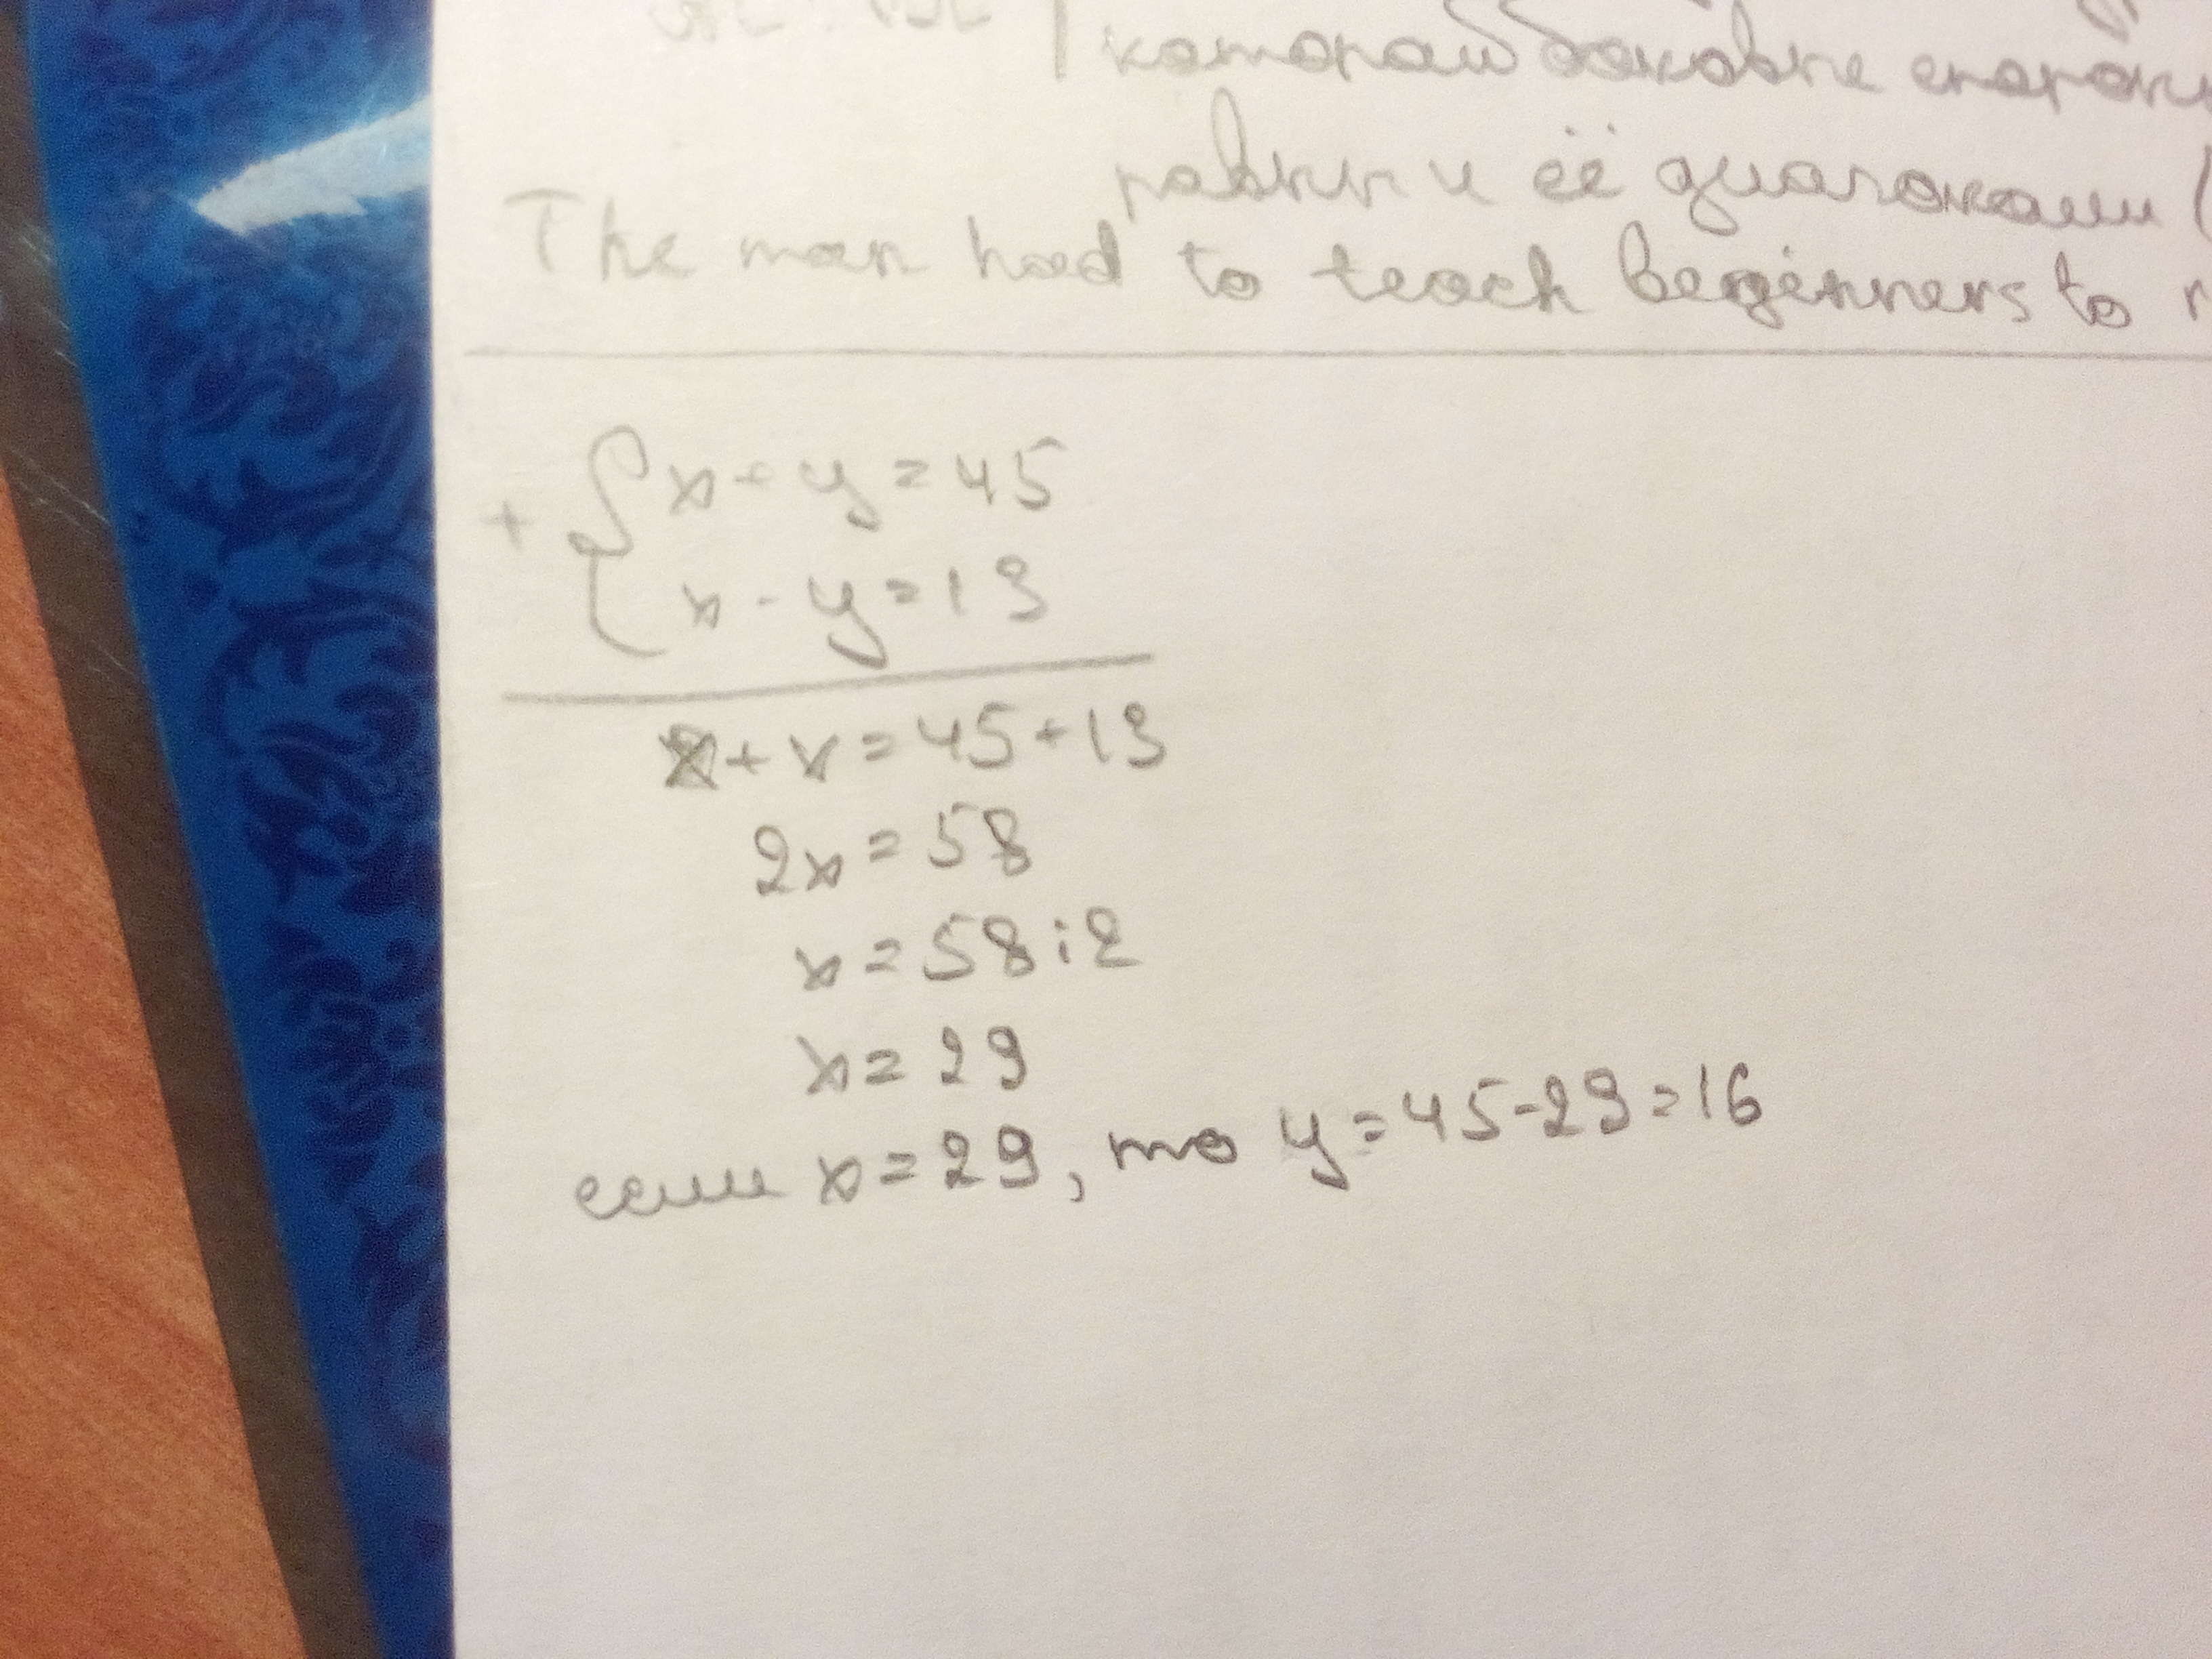 которой боковые сторон
равны и её диагонали (
The man had to teach beginners to r
+ { x + y = 45
x - y = 13
x + x = 45 + 13
2x = 58
x = 58 : 2
x = 29
если x = 29, то y = 45 - 29 = 16